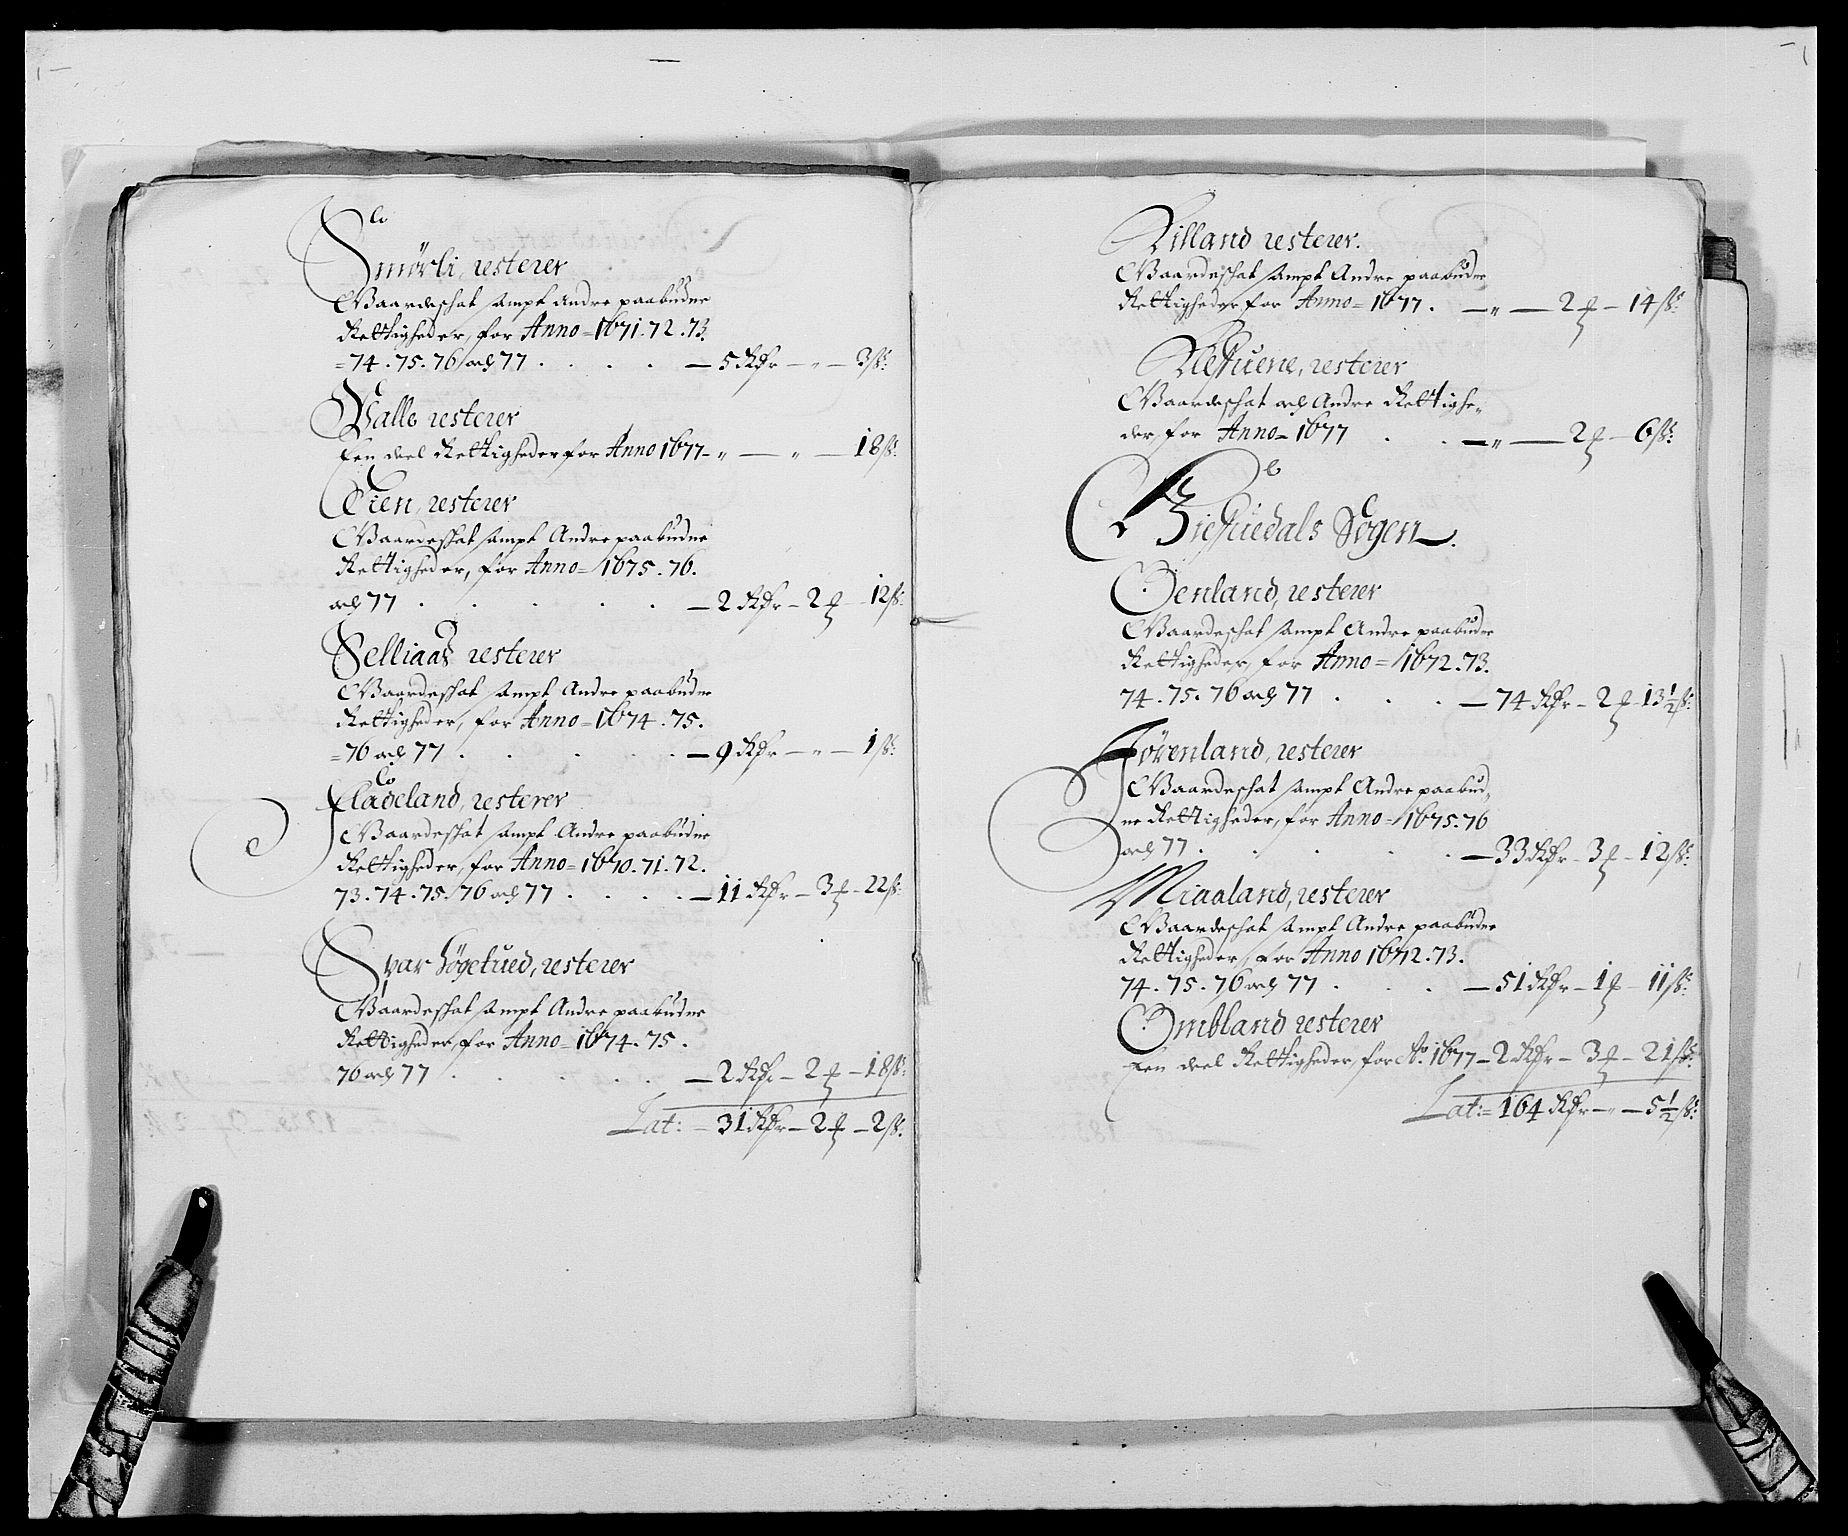 Smørli, resterer
Gaardeschat sampt Andre paabudne
Rettigheder, for Anno = 1671. 72. 73.
= 74. 75. 76 och 77 . . . . — 5 Rdr — „ — 3 ß:
Walle resterer
Een deel Rettigheder for Anno 1677 - „ — „ — 18 ß:
Eien, resterer
Gaardeschat sampt Andre paabudne
Rettigheder, for Anno = 1675. 76.
och 77 . . . . . — 2 Rdr — 2 ʠ — 12 ß:
Selliaas resterer
Gaardeschat sampt Andre paabudne
Rettigheder, for Anno = 1674. 75.
= 76 och 77 . . . . — 9 Rdr — „ — 1 ß:
Fladeland, resterer
Gaardeschat sampt Andre paabudne
Rettigheder, for Anno = 1670. 71. 72.
73. 74. 75. 76 och 77 . . . . — 11 Rdr — 3 ʠ — 22 ß:
Spar resterer
Gaardeschat sampt Andre paabudne
Rettigheder, for Anno = 1674. 75.
76 och 77 . . . . . — 2 Rdr — 2 ʠ — 18 ß:
Lat: — 31 Rdr — 2 ʠ — 2 ß:
Lilland resterer.
Gaardeschat sampt Andre paabudne
Rettigheder, for Anno = 1677. — „ — 2 ʠ — 14 ß:
resterer
Gaardeschat och Andre Rettighe„
der, for Anno = 1677 . . — „ — 2 ʠ — 6 ß:
Sogen.
Oenland, resterer
Gaardeschat sampt Andre paabudne
Rettigheder, for Anno = 1672. 73.
74. 75. 76 och 77 . . . — 74 Rdr — 2 ʠ — 13½ ß:
Jørenland, resterer
Gaardeschat sampt Andre paabud„
ne Rettigheder, for Anno = 1675. 76
och 77 . . . . . — 33 Rdr — 3 ʠ — 12 ß:
Miaaland, resterer
Gaardeschat sampt Andre paabudne
Rettigheder, for Anno 1672. 73.
74. 75. 76 och 77 . . . — 51 Rdr — 1 ʠ — 11 ß:
Ombland resterer
Een deel Rettigheder, for Ao. 1677 — 2 Rdr — 3 ʠ — 21 ß:
Lat: = 164 Rdr — „ — 5½ ß: